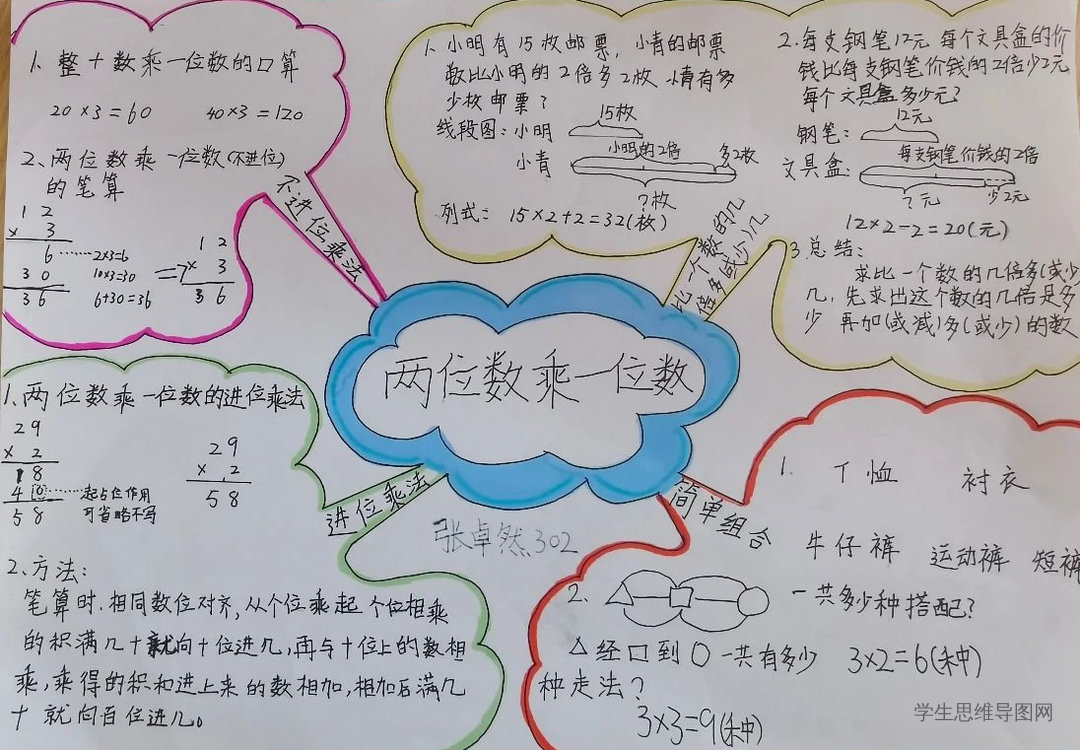 1、整十数乘一位数的口算
20×3=60 40×3=120
2、两位数乘一位数(不进位)
的笔算
1 2
× 3
6……2×3=6
3 0 10×3=30
3 6 6+30=36
=>
1 2
× 3
3 6
不进位乘法
1、小明有15枚邮票，小青的邮票
数比小明的2倍多2枚，小青有多
少枚邮票？
15枚
线段图：小明
小明的2倍 多2枚
小青
？枚
列式：15×2+2=32(枚)
2.每支钢笔12元，每个文具盒的价
钱比每支钢笔价钱的2倍少2元，
每个文具盒多少元？
12元
钢笔：
每支钢笔价钱的2倍
文具盒：
？元 少2元
12×2-2=20(元)
3总结：
求比一个数的几倍多(或少
几，先求出这个数的几倍是多
少 再加(或减)多(或少)的数
比一个数的几
倍多(或少)几
两位数乘一位数
1、两位数乘一位数的进位乘法
29
× 2
18
40……起占位作用
58 可省略不写
29
× 2
58
进位乘法
2、方法：
笔算时.相同数位对齐，从个位乘起 个位相乘
的积满几十就向十位进几，再与十位上的数相
乘，乘得的积和进上来的数相加，相加后满几
十 就向百位进几。
张卓然.302
简单组合
1. T恤 衬衣
牛仔裤 运动裤 短裤
一共多少种搭配？
3×2=6(种)
2.
△经口到〇一共有多少
种走法？
3×3=9(种)
学生思维导图网